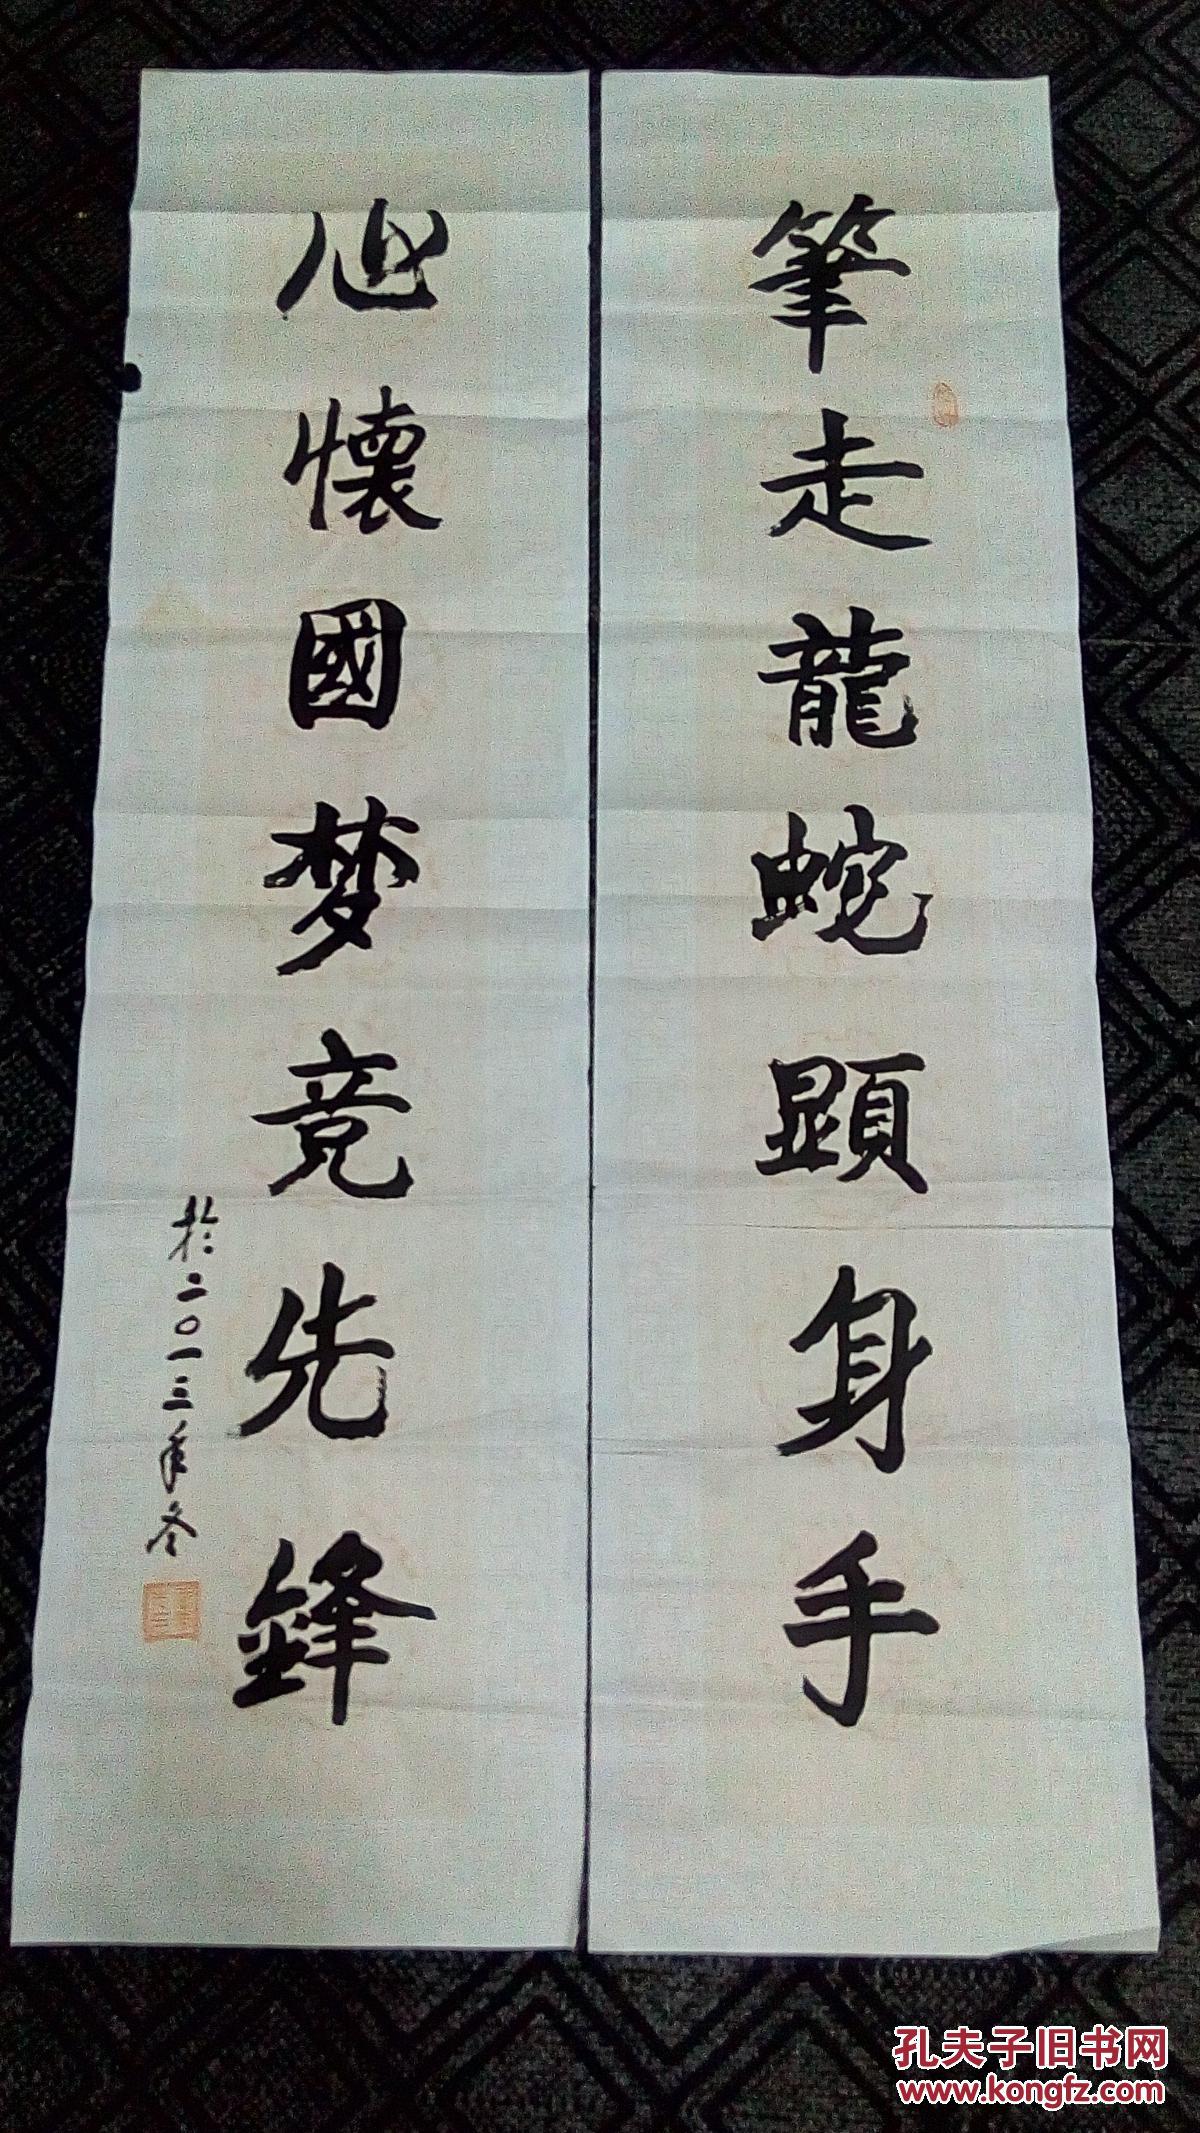 筆走龍蛇顕身手
心懷國梦竞先鋒
於二〇一三年冬
孔夫子旧书网
www.kongfz.com